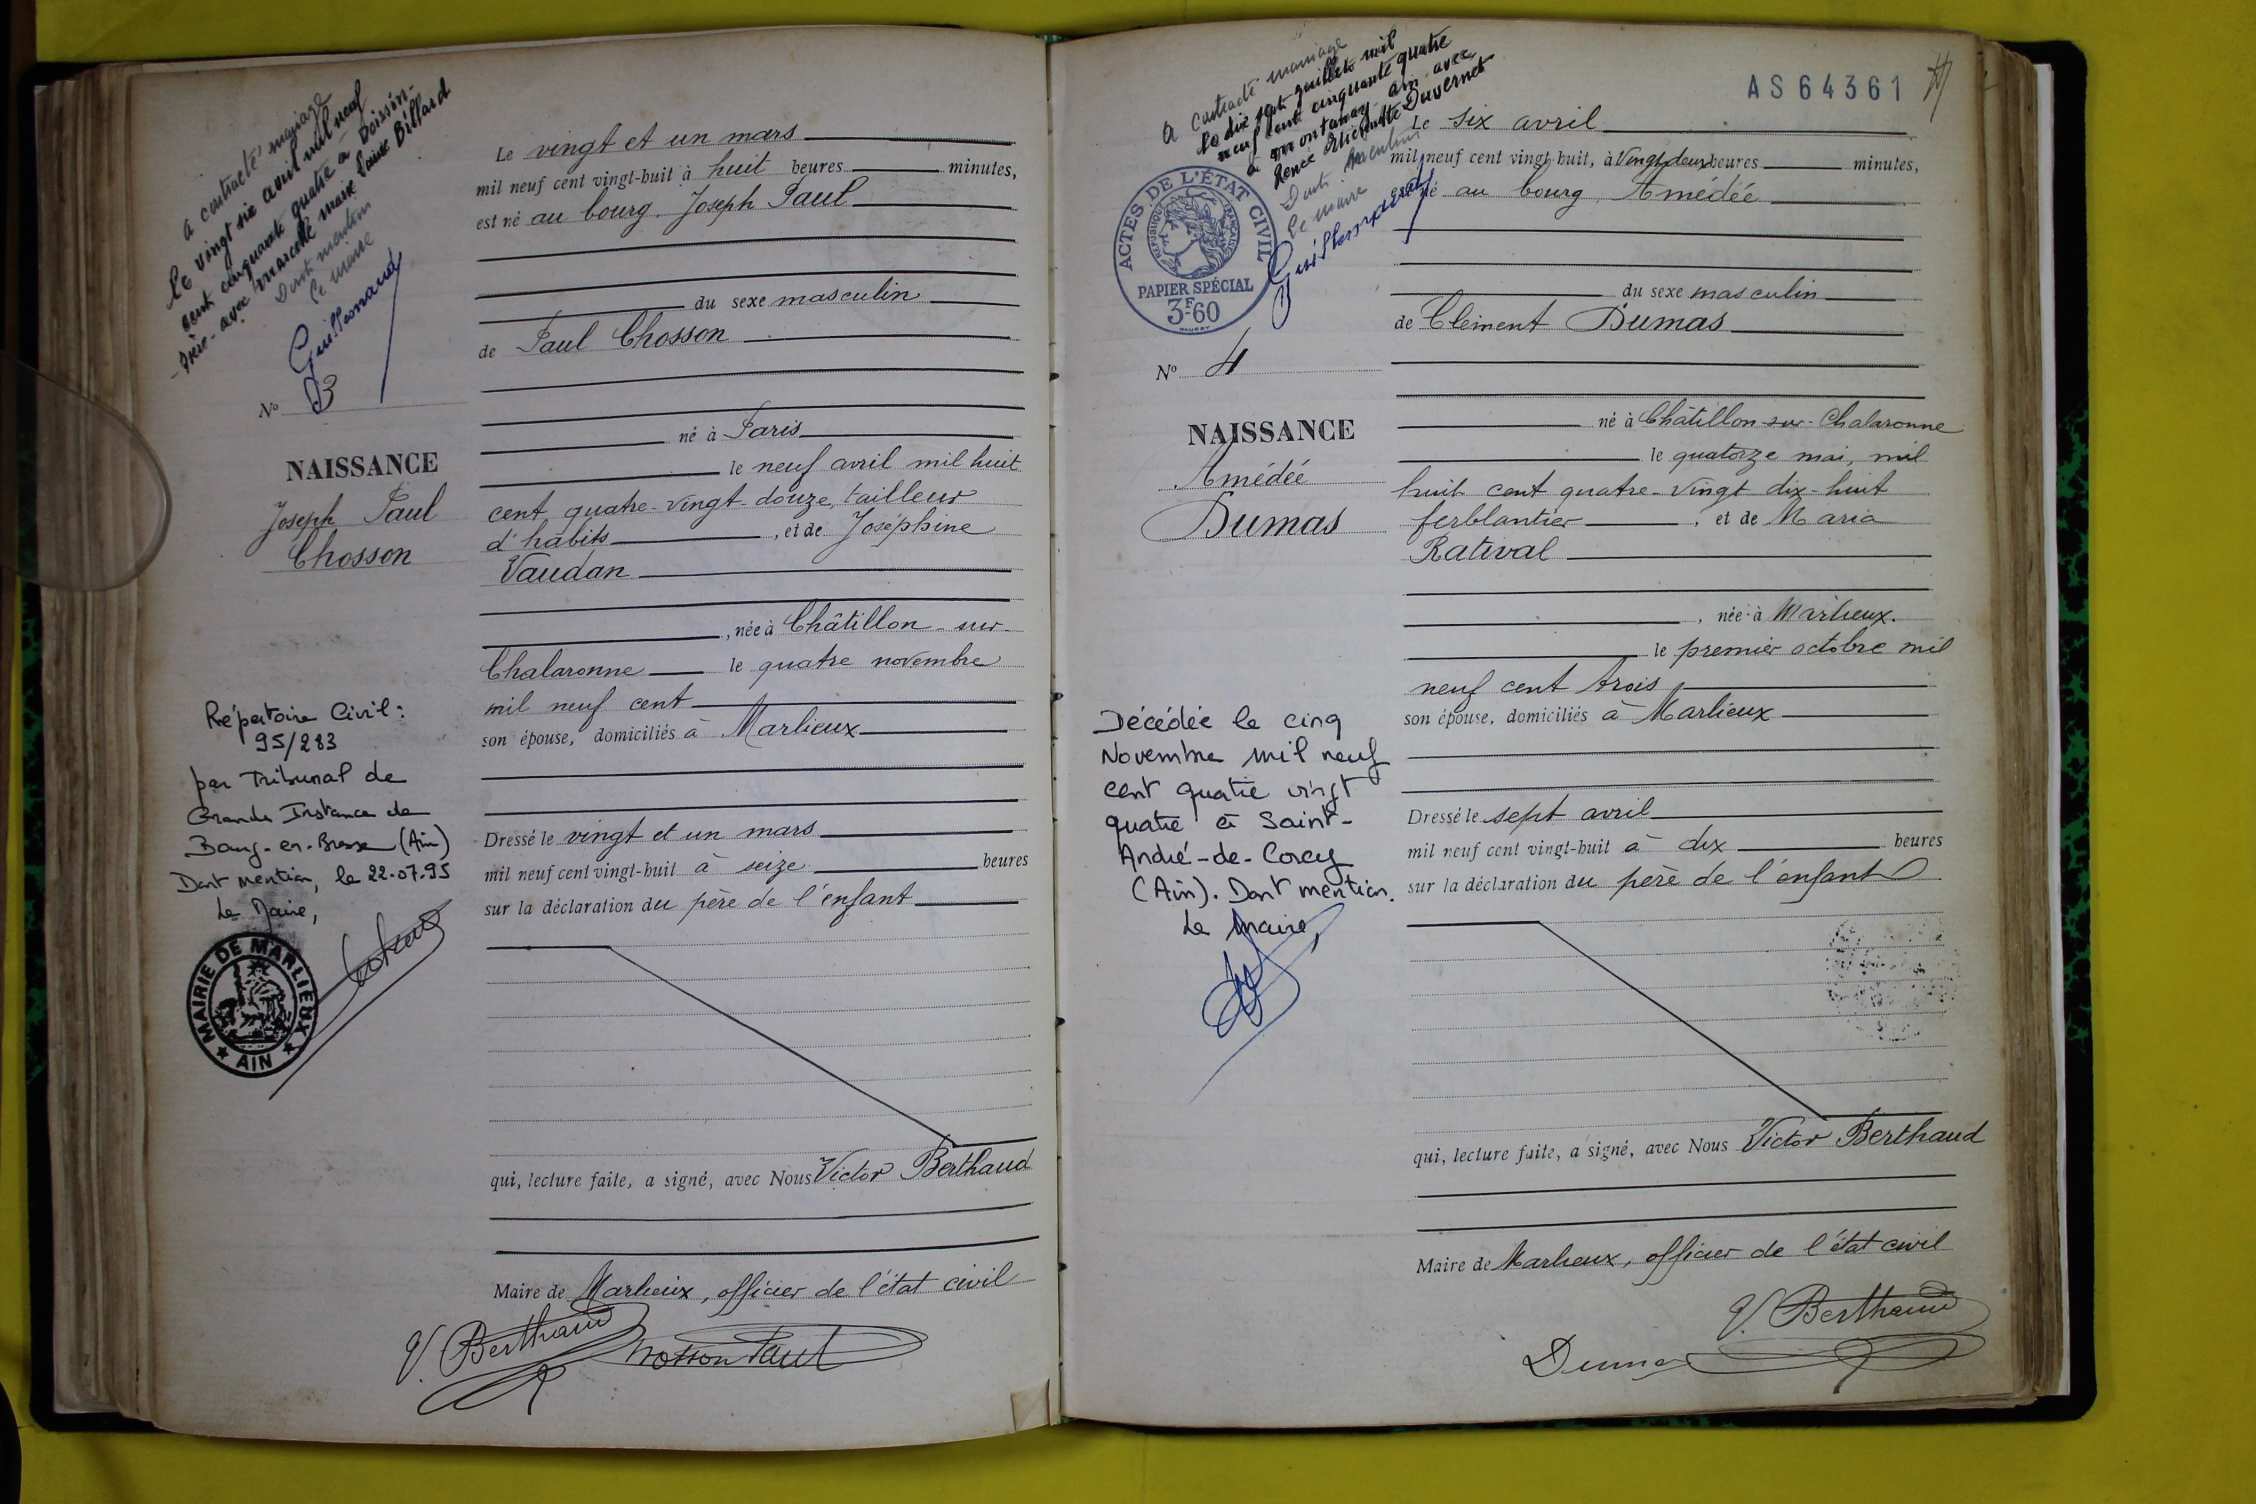 a contracté mariage
le vingt six avril mil neuf
cent cinquante quatre à Boissin-
avec Marcelle Marie Louise Billard
Dont mention
Le maire
Guillermaud
Le vingt et un mars
mil neuf cent vingt-huit à huit heures minutes,
est né au bourg, Joseph Paul
du sexe masculin
de Paul Chosson
No 3
né à Paris
le neuf avril mil huit
NAISSANCE
Joseph Paul
Chosson
cent quatre-vingt-douze, tailleur
d'habits, et de Joséphine
Vaudan
, née à Châtillon-sur-
Chalaronne le quatre novembre
mil neuf cent
son épouse, domiciliés à Marlieux
Répertoire Civil:
95/283
par Tribunal de
Grande Instance de
Bourg-en-Bresse (Ain)
Dont mention, le 22.07.95
Le Maire,
MAIRIE DE MARLIEUX
AIN
Dressé le vingt et un mars
mil neuf cent vingt-huit à seize heures
sur la déclaration du père de l'enfant
qui, lecture faite, a signé, avec Nous Victor Berthaud
Maire de Marlieux, officier de l'état civil
V. Berthaud
Chosson Paul
AS64361
a contracté mariage
le dix sept juillet mil
neuf cent cinquante quatre
à Montanay Ain avec
Duvernet
Dont mention
Le maire
Guillermaud
ACTES DE L'ÉTAT CIVIL
RÉPUBLIQUE FRANÇAISE
PAPIER SPÉCIAL
3F60
Le six avril
mil neuf cent vingt-huit, à Vingt deux heures minutes,
né au bourg, Amédée
du sexe masculin
de Clément Dumas
No 4
né à Châtillon-sur-Chalaronne
le quatorze mai, mil
NAISSANCE
Amédée
Dumas
huit cent quatre-vingt dix-huit
ferblantier, et de Maria
Rativál
, née à Marlieux.
le premier octobre mil
neuf cent trois
son épouse, domiciliés à Marlieux
Décédée le cinq
Novembre mil neuf
cent quatre vingt
quatre à Saint-
André-de-Corcy
(Ain). Dont mention.
Le Maire,
Dressé le sept avril
mil neuf cent vingt-huit à dix heures
sur la déclaration du père de l'enfant
qui, lecture faite, a signé, avec Nous Victor Berthaud
Maire de Marlieux, officier de l'état civil
V. Berthaud
Dumas